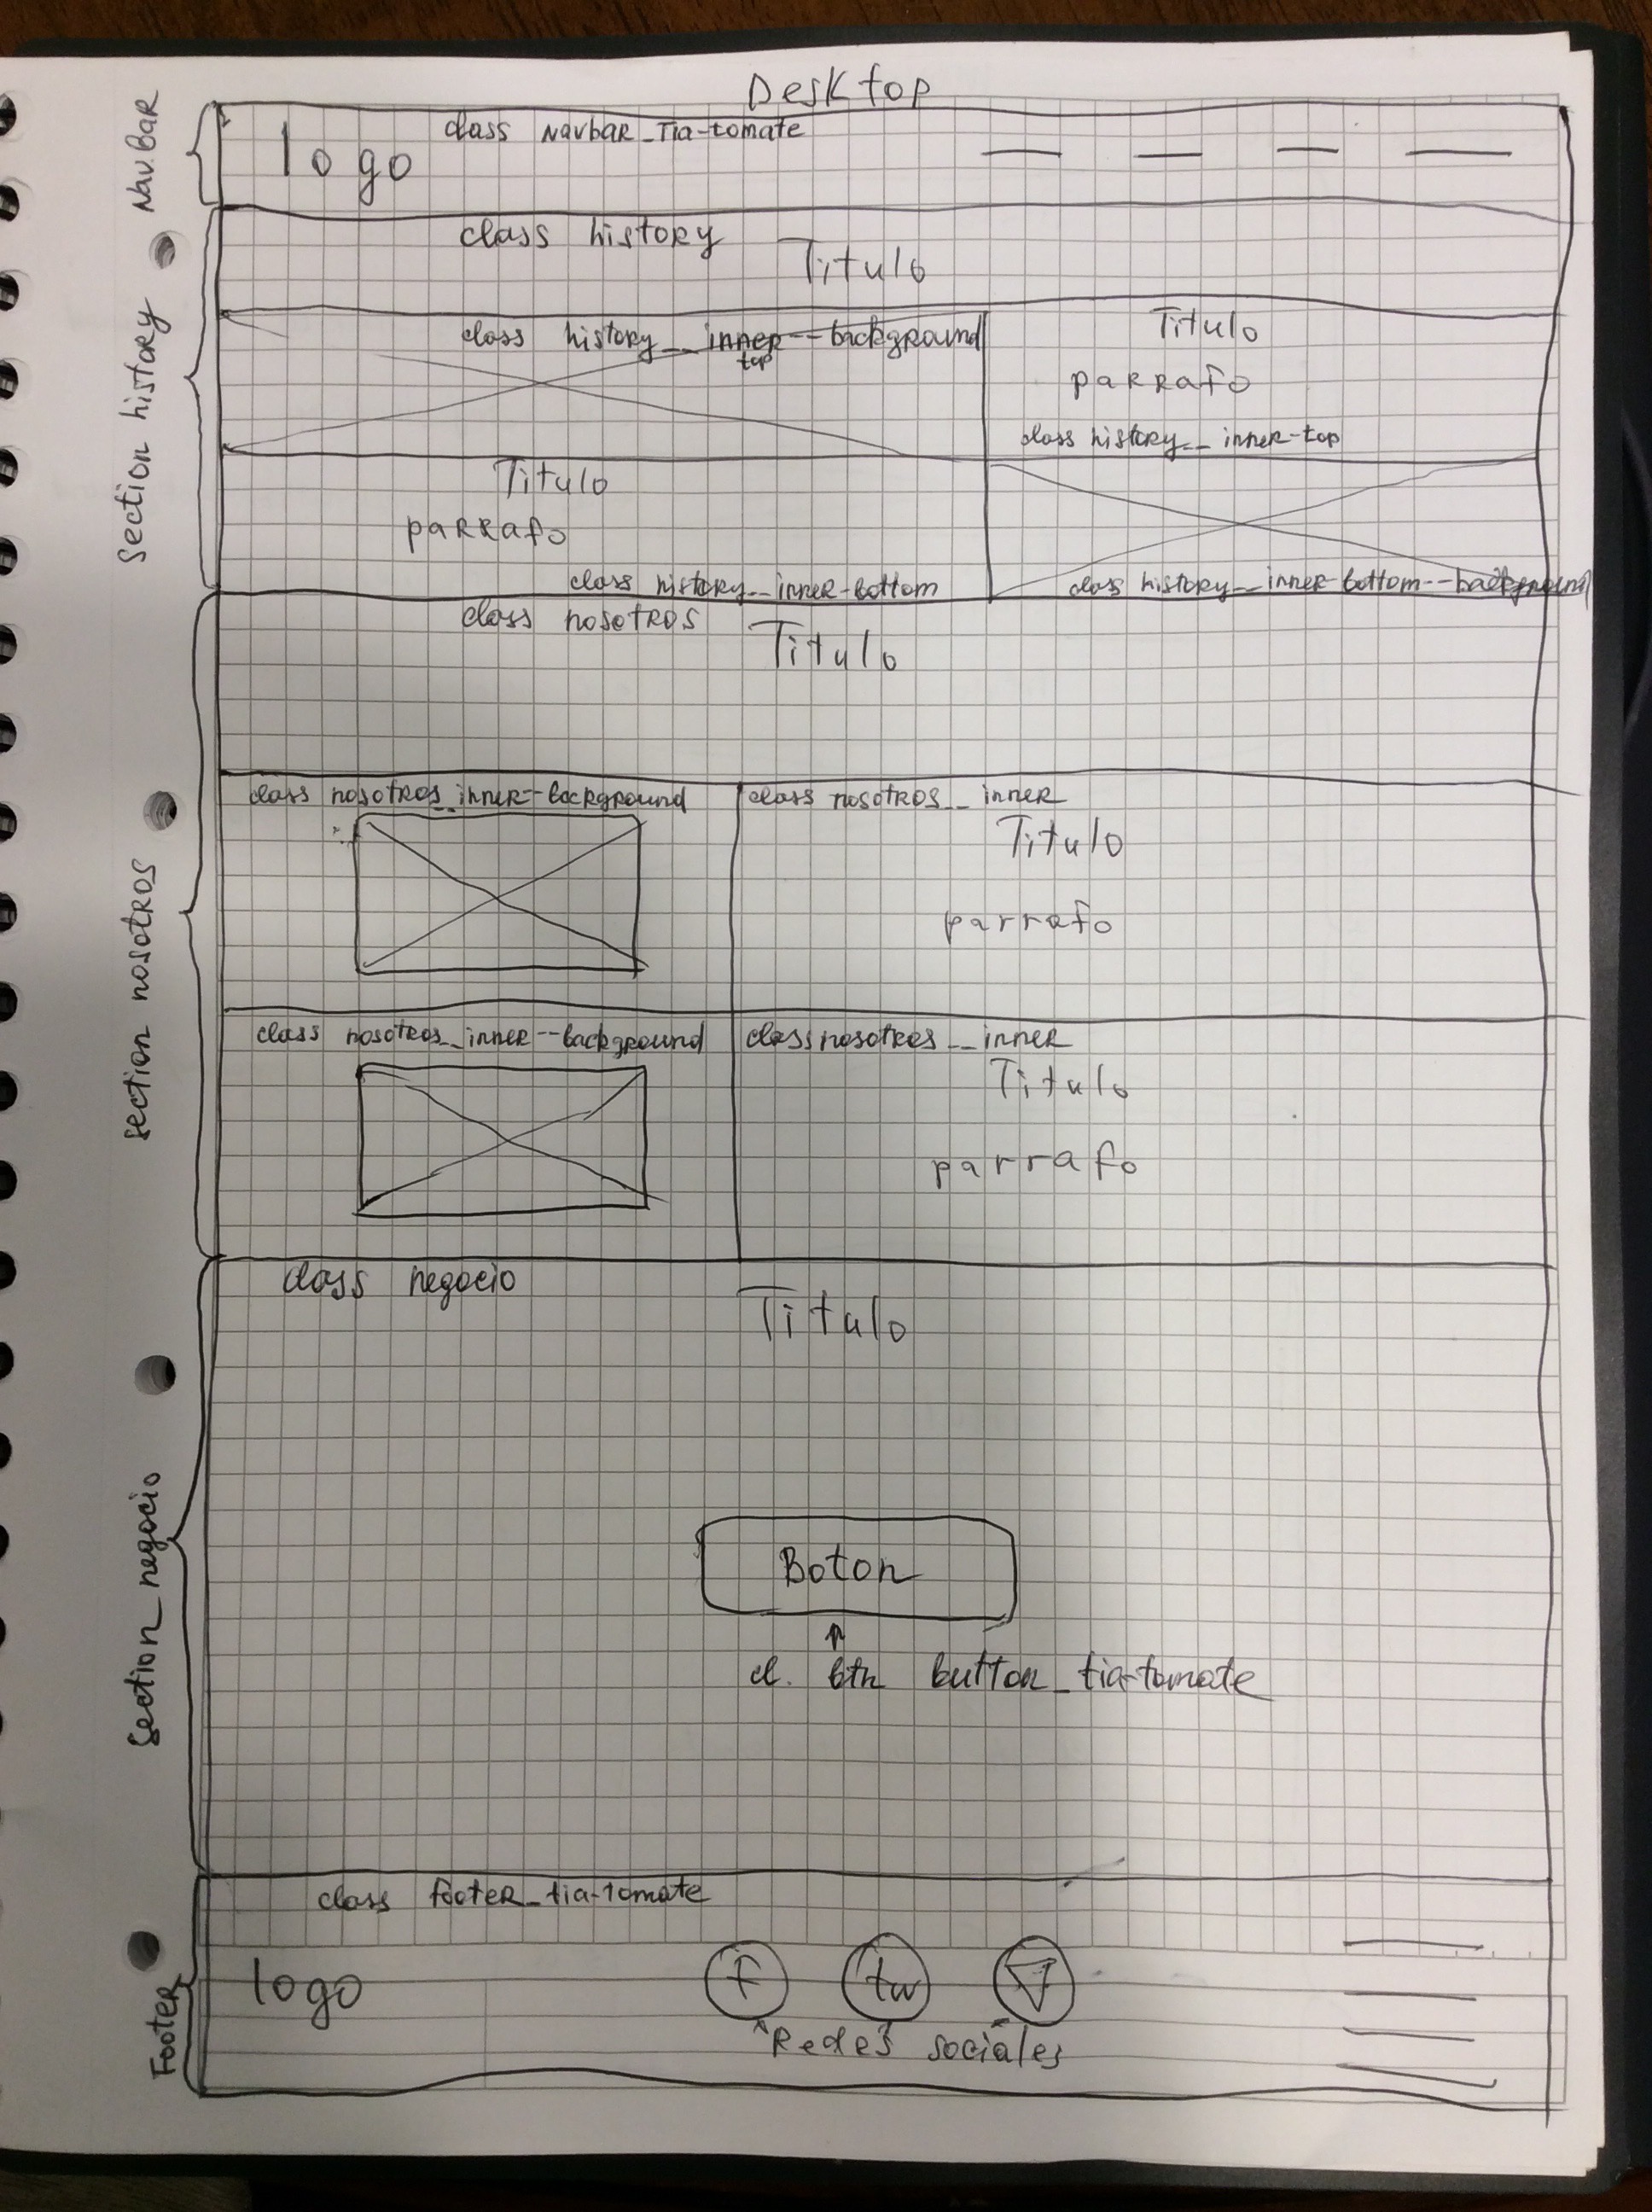 Desktop
NavBaR
class NavbaR_Tia-tomate
logo
Section history
class history
Titulo
class history__inner--background
top
Titulo
paRRafo
class history__inner-top
Titulo
paRRafo
class history__inner-bottom
class history__inner-bottom--background
section nosotRos
class nosotRos
Titulo
class nosotRos__inner--background
class nosotRos__inner
Titulo
parrafo
class nosotRos__inner--background
class nosotRos__inner
Titulo
parrafo
Section negocio
class negocio
Titulo
Boton
cl. btn button_tia-tomate
FooteR
class footeR_tia-tomate
logo
f tw
Redes sociales